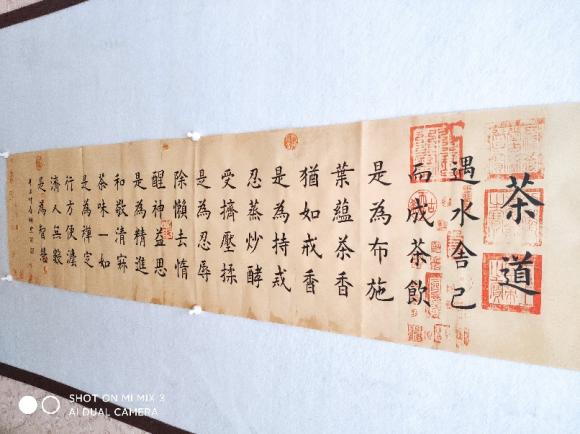 茶道
遇水舍己
而成茶飲
是為布施
葉蘊茶香
猶如戒香
是為持戒
忍蒸炒酵
受擠壓揉
是為忍辱
除懶去惰
醒神益思
是為精進
和敬清寂
茶味一如
是為禪定
行方便法
濟人無數
是為智慧
SHOT ON MI MIX 3
AI DUAL CAMERA